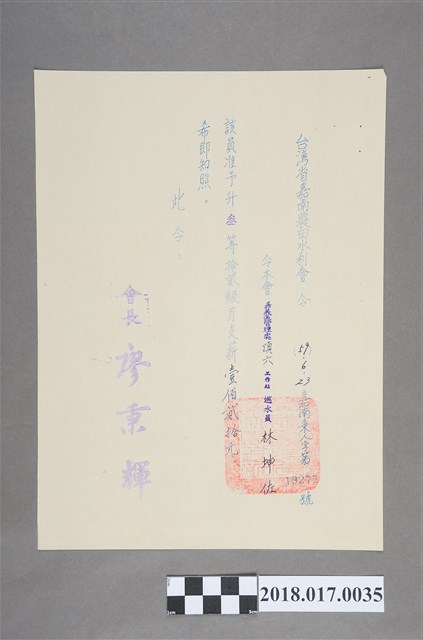 台灣省嘉南農田水利會 令
(59).6.23 嘉南秉人字第
號
令本會 嘉義區管理處 頂六 工作站 巡水員 林坤佐
該員准予升 叁 等拾貳級月支薪 壹佰貳拾元。
希即知照。
此令:
會長 廖秉輝
2018.017.0035